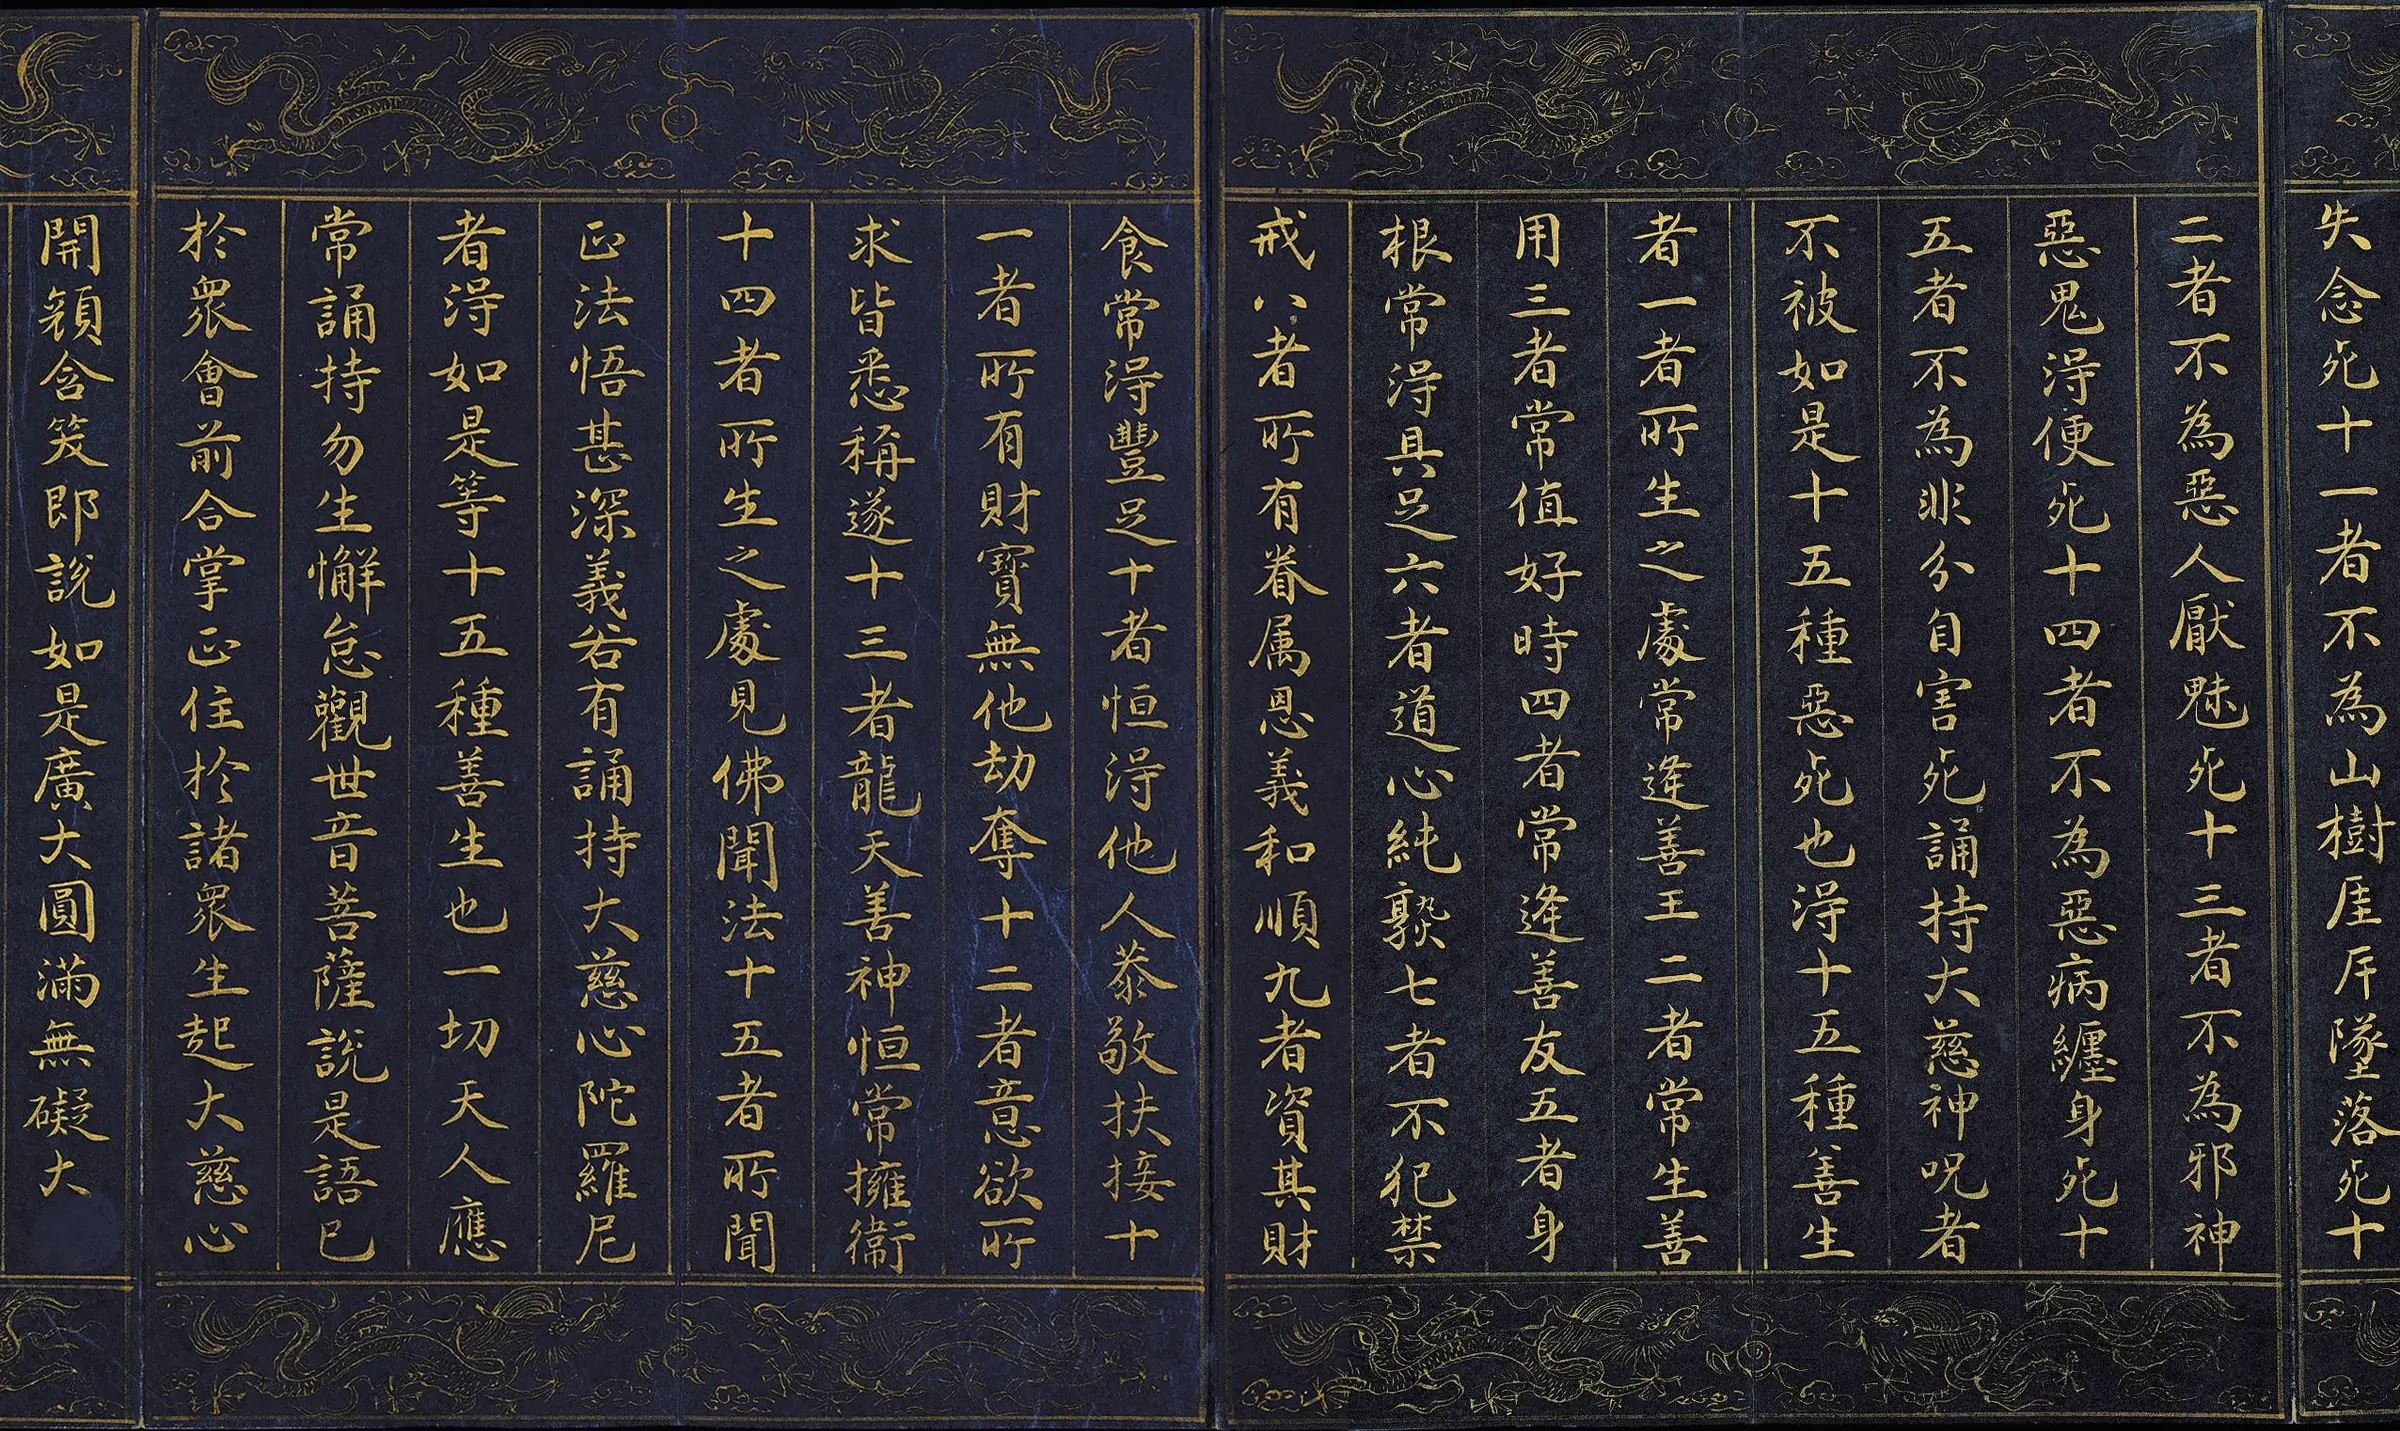 失念死十一者不為山樹厓岸墜落死十
二者不為惡人厭魅死十三者不為邪神
惡鬼淂便死十四者不為惡病纏身死十
五者不為非分自害死誦持大慈神呪者
不被如是十五種惡死也淂十五種善生
者一者所生之處常逢善王二者常生善
用三者常值好時四者常逢善友五者身
根常淂具足六者道心純熟七者不犯禁
戒八者所有眷属恩義和順九者資其財
食常淂豐足十者恒淂他人恭敬扶接十
一者所有財寶無他劫奪十二者意欲所
求皆悉稱遂十三者龍天善神恒常擁衞
十四者所生之處見佛聞法十五者所聞
正法悟甚深義若有誦持大慈心陀羅尼
者淂如是等十五種善生也一切天人應
常誦持勿生懈怠觀世音菩薩說是語已
於眾會前合掌正住於諸眾生起大慈心
開顏含笑即說如是廣大圓滿無礙大